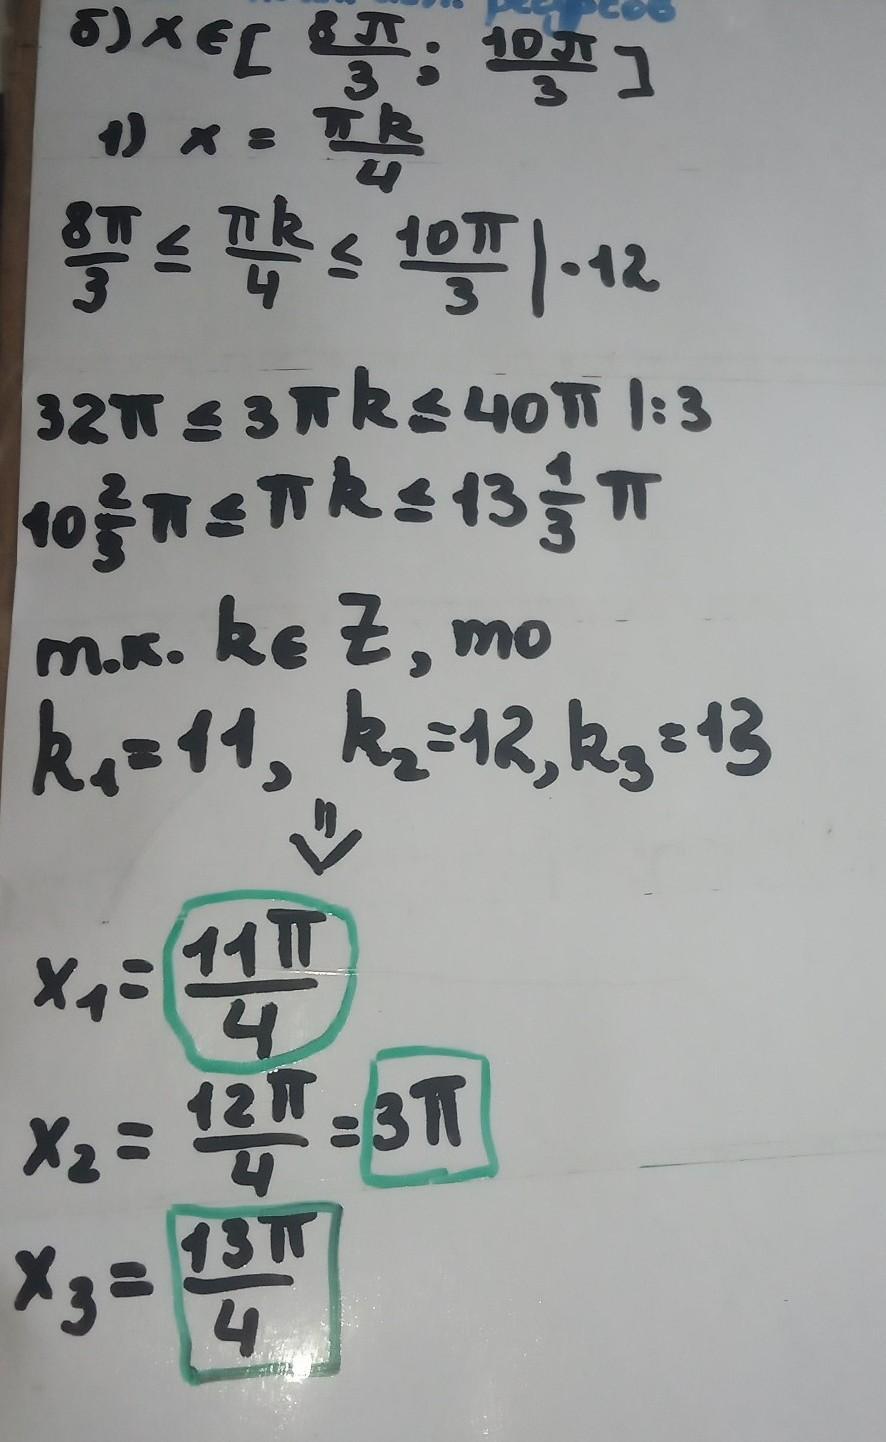 ресурсов
б) x ∈ [ 8π/3 ; 10π/3 ]
1) x = πk/4
8π/3 ≤ πk/4 ≤ 10π/3 | · 12
32π ≤ 3πk ≤ 40π |:3
10 2/3 π ≤ πk ≤ 13 1/3 π
т.к. k ∈ Z, то
k₁=11, k₂=12, k₃=13
⇓
x₁ = 11π/4
x₂ = 12π/4 = 3π
x₃ = 13π/4